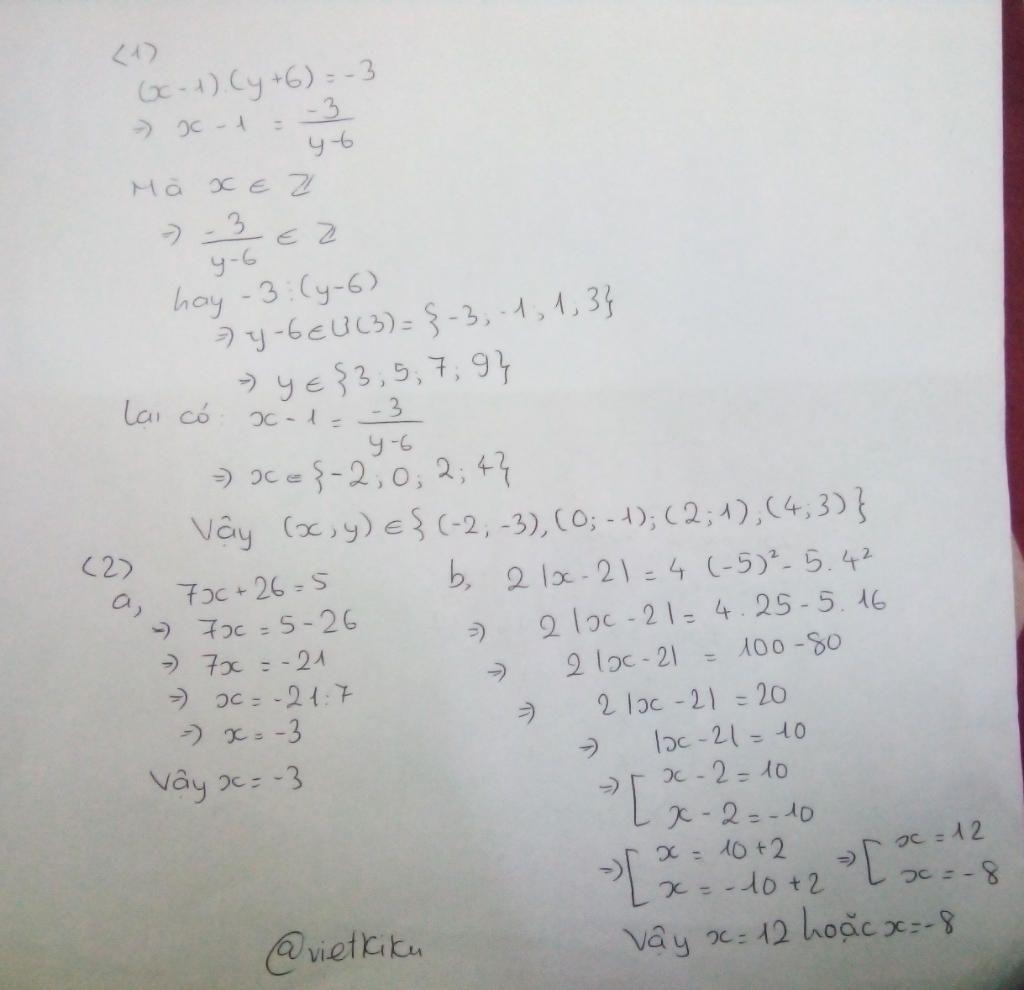 <1>
(x-1).(y+6)=-3
=> x - 1 = -3/(y-6)
Mà x ∈ Z
=> -3/(y-6) ∈ Z
hay -3⋮(y-6)
=> y-6∈Ư(3)={-3; -1; 1; 3}
=> y ∈ {3; 5; 7; 9}
Lại có: x - 1 = -3/(y-6)
=> x = {-2; 0; 2; 4}
Vậy (x,y) ∈ {(-2; -3), (0; -1); (2; 1); (4; 3)}
<2>
a, 7x + 26 = 5
=> 7x = 5 - 26
=> 7x = -21
=> x = -21:7
=> x = -3
Vậy x = -3
b, 2|x - 2| = 4 (-5)² - 5. 4²
=> 2|x - 2| = 4. 25 - 5. 16
=> 2|x-2| = 100 - 80
=> 2|x - 2| = 20
=> |x - 2| = 10
=> [ x - 2 = 10
x - 2 = -10
=> [ x = 10 + 2 => [ x = 12
x = -10 + 2 x = -8
Vậy x = 12 hoặc x = -8
@vietkiku